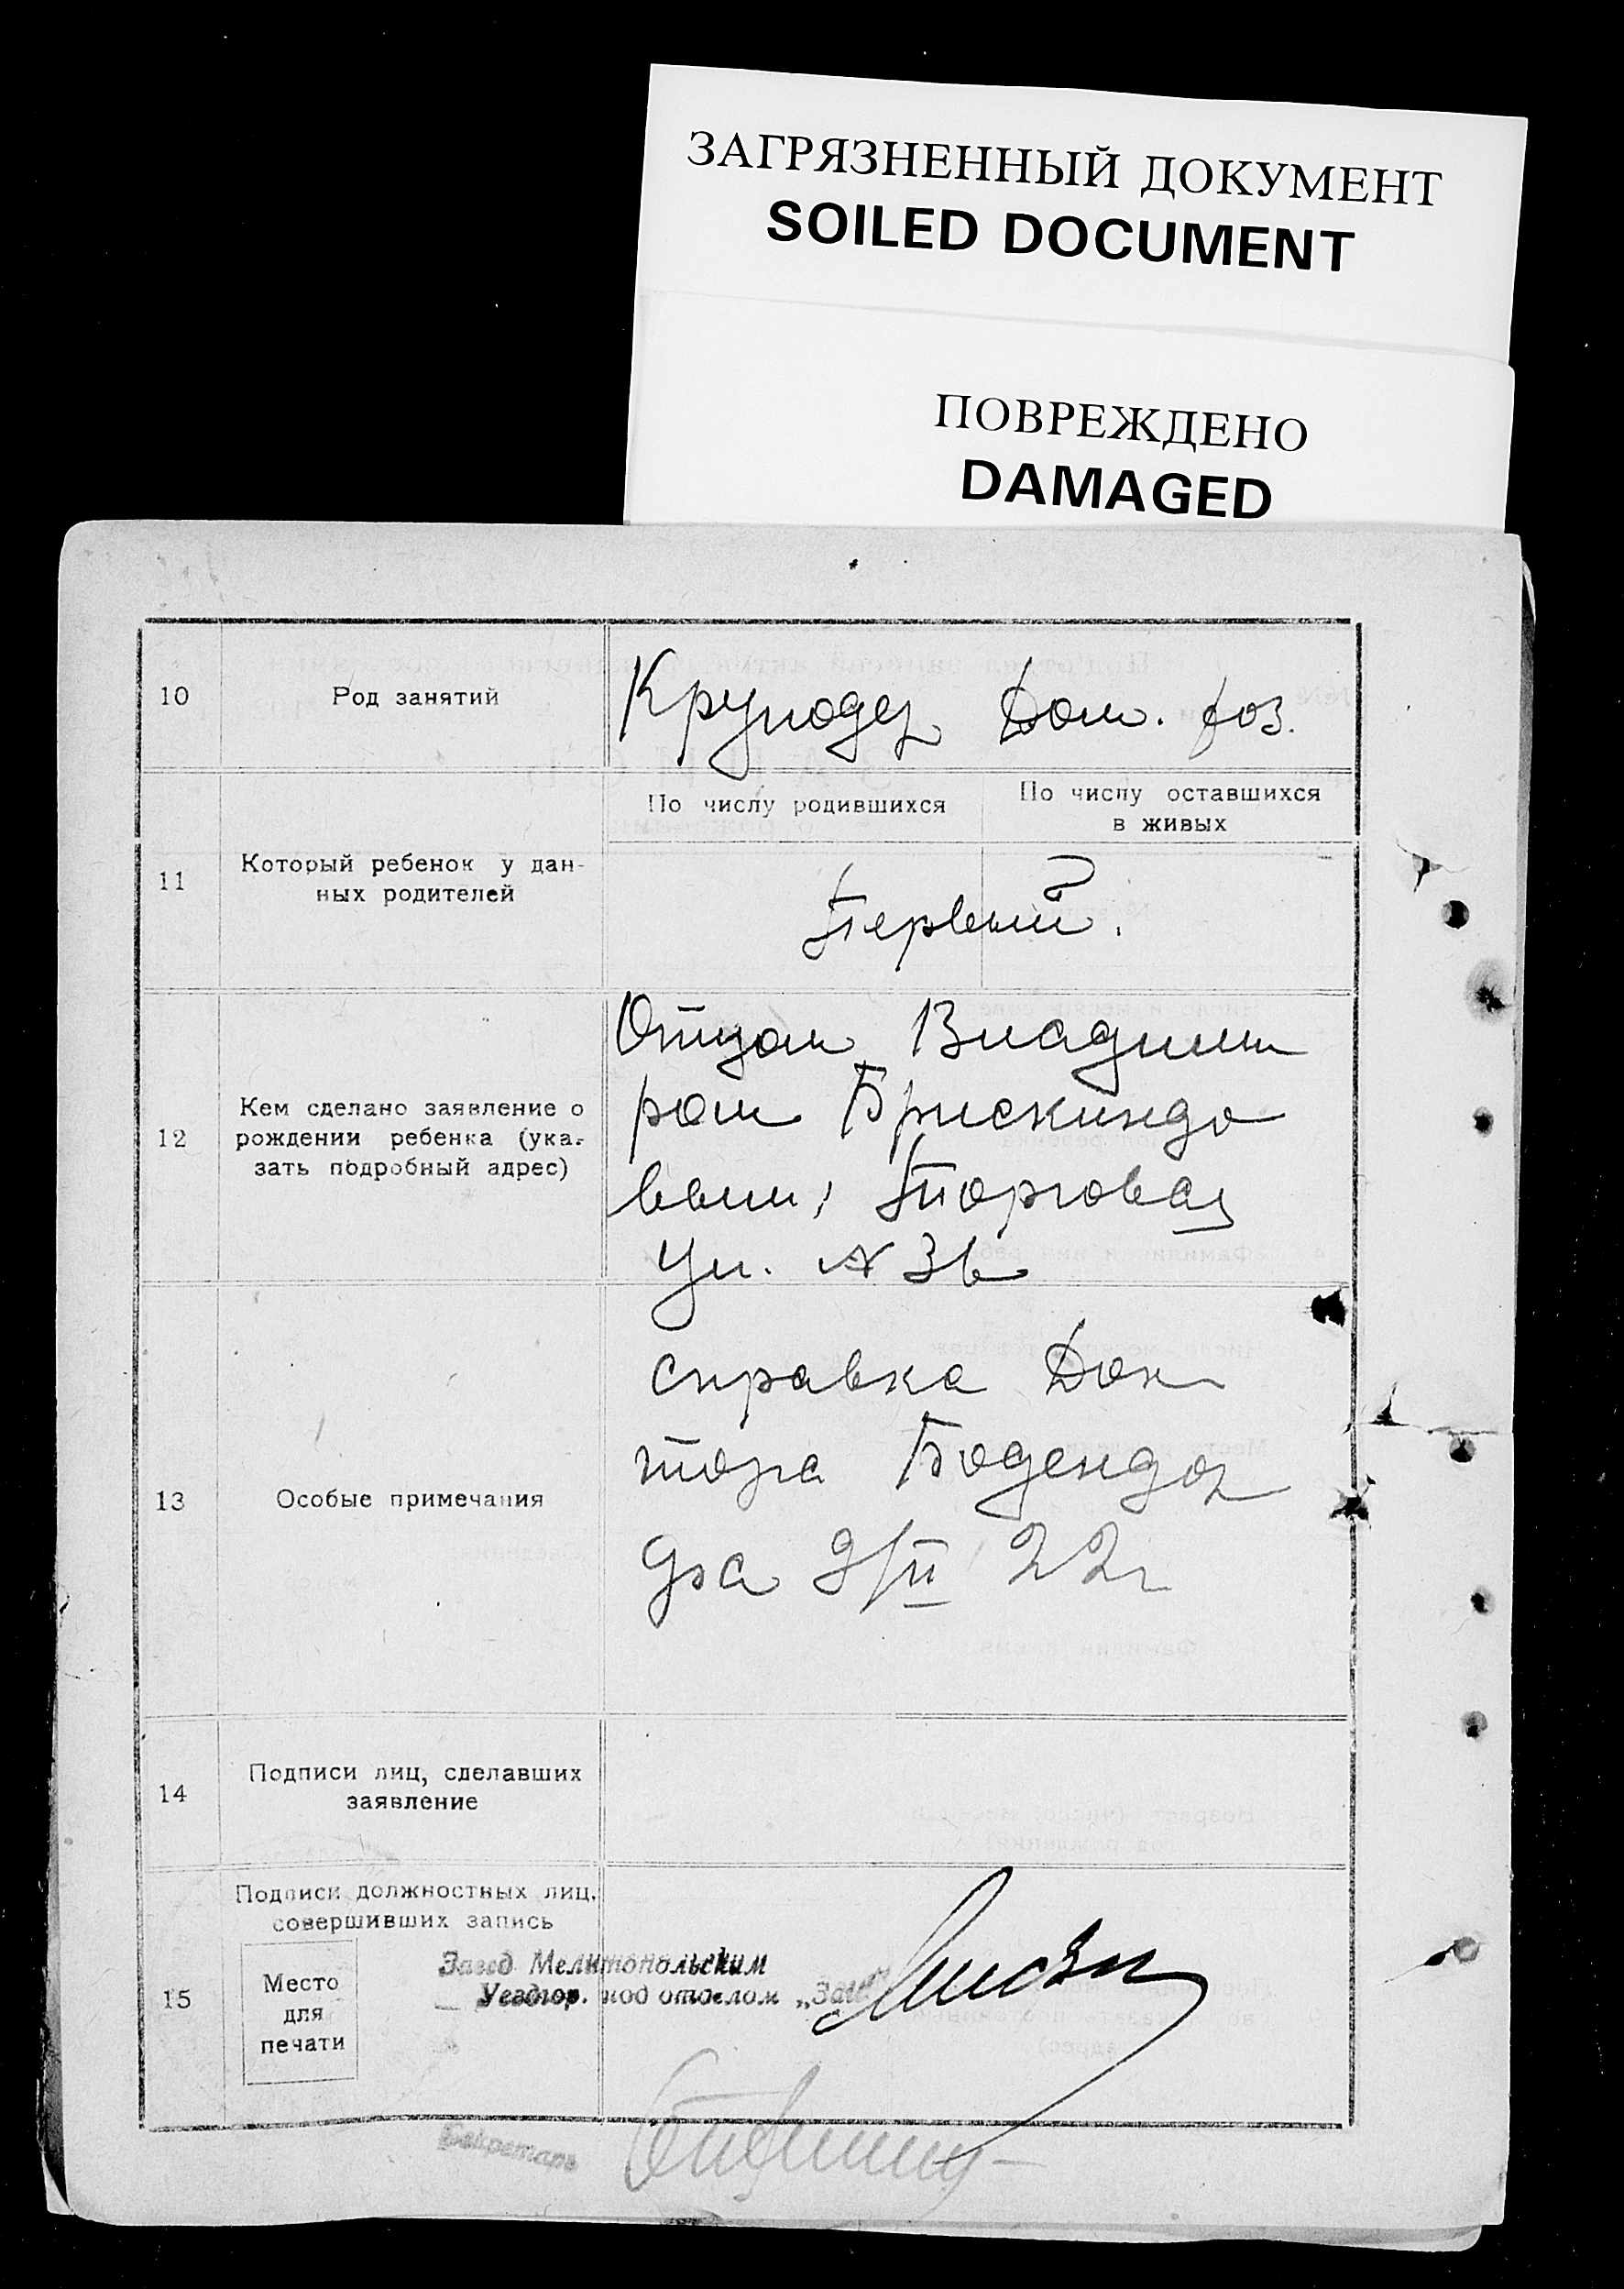 ЗАГРЯЗНЕННЫЙ ДОКУМЕНТ
SOILED DOCUMENT
ПОВРЕЖДЕНО
DAMAGED
10
Род занятий
Круподер Дом. хоз.
По числу родившихся
По числу оставшихся
в живых
11
Который ребенок у дан-
ных родителей
Первый.
12
Кем сделано заявление о
рождении ребенка (ука-
зать подробный адрес)
Отцом Владими
ром Брискиндо
вым, Торговая
Ул. № 36
13
Особые примечания
справка Док
тора
22г
14
Подписи лиц, сделавших
заявление
15
Подписи должностных лиц,
совершивших запись
Место
для
печати
Завед Мелитопольским
Уездгор. под отделом „Загс"
Секретарь